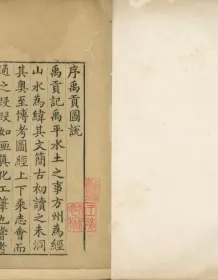 序禹貢圖說
禹貢記禹平水土之事方州為經
山水為緯其文簡古初讀之未洞
其奧至博考圖經上下乘志會而
通之段段如畫真化工筆也嘗考